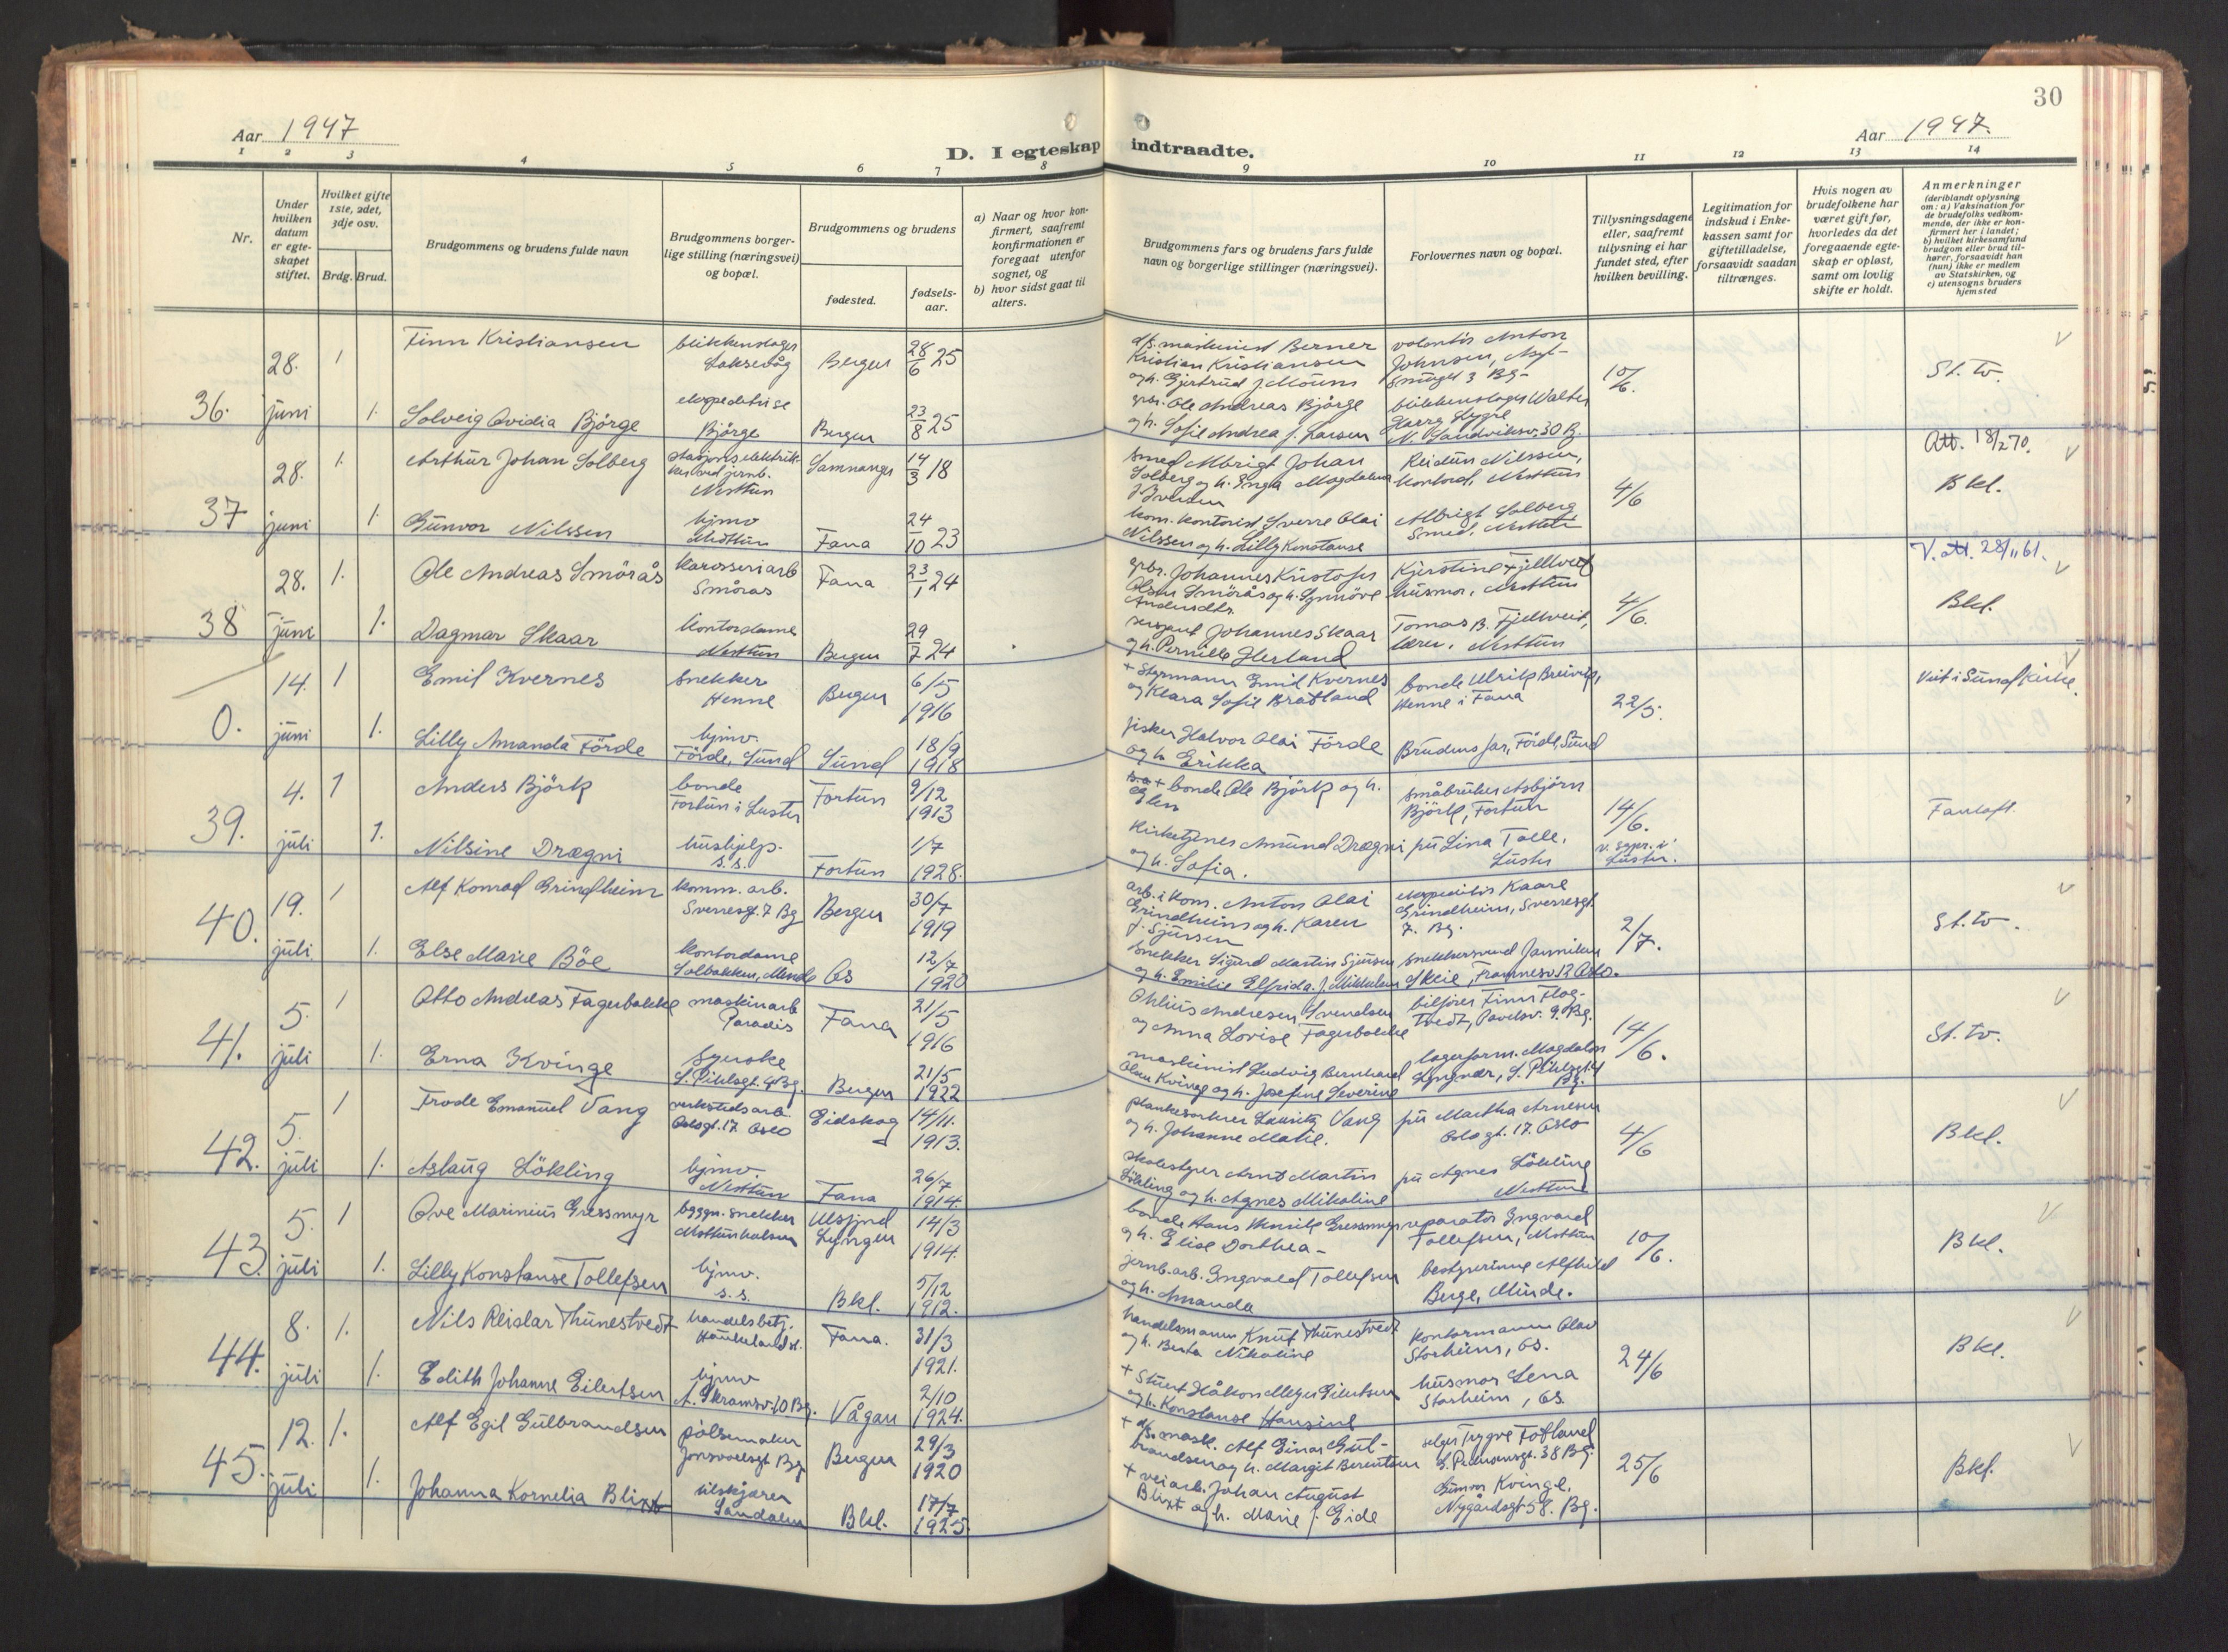 30
Aar 1947
Aar 1947.
D. I egteskap indtraadte.
1 2 3 4 5 6 7 8 9 10 11 12 13 14
Nr.
Under hvilken datum er egteskapet stiftet.
Hvilket gifte 1ste, 2det, 3dje osv.
Brdg. Brud.
Brudgommens og brudens fulde navn
Brudgommens borgerlige stilling (næringsvei) og bopæl.
Brudgommens og brudens
fødested.
fødselsaar.
a) Naar og hvor konfirmert, saafremt konfirmationen er foregaat utenfor sognet, og
b) hvor sidst gaat til alters.
Brudgommens fars og brudens fars fulde navn og borgerlige stillinger (næringsvei).
Forlovernes navn og bopæl.
Tillysningsdagene eller, saafremt tillysning ei har fundet sted, efter hvilken bevilling.
Legitimation for indskud i Enkekassen samt for giftetilladelse, forsaavidt saadan tiltrænges.
Hvis nogen av brudefolkene har været gift før, hvorledes da det foregaaende egteskap er opløst, samt om lovlig skifte er holdt.
Anmerkninger (deriblandt oplysning om: a) Vaksination for de brudefolks vedkommende, der ikke er konfirmert her i landet; b) hvilket kirkesamfund brudgom eller brud tilhører, forsaavidt han (hun) ikke er medlem av Statskirken, og c) utensogns bruders hjemsted
36. 28. juni 1 Finn Kristiansen blikkenslager Laksevåg Bergen 28/6 25
d/s. maskinist Berner Kristian Kristiansen og h. Gjertrud f. Moum
Anton Johnsen, smuget 3 Bg- 10/6. St. tv.
1. Solveig Ovidia Björge ekspeditrise Björge Bergen 23/8 25
gbr. Ole Andreas Björge og h. Sofie Andrea f. Larsen
blikkenslager Walter Haarg Sygre N. Sandviksv. 30 B.
37 28. juni 1. Arthur Johan Solberg stasjonselektriker ved jernb. Nesttun Samnanger 14/3 18
smed Albrigt Johan Solberg og h. Inga Magdalena
Reidun Nilssen, kontord, Nesttun 4/6 Att. 18/2 70. Bkl.
1. Gunvor Nilssen hjmv Nesttun Fana 24/10 23
kom. kontorist Sverre Olai Nilssen og h. Lilly Konstanse
Albrigt Solberg smed, Nesttun
38 28. juni 1. Ole Andreas Smörås karosseriarb Smörås Fana 23/1 24
gbr. Johannes Kristofer Olsen Smörås og h. Synnöve Andersdtr.
Kjerstine Fjellveit husmor, Nesttun 4/6. V. att. 28/11 61. Bkl.
1. Dagmar Skaar kontordame Nesttun Bergen 29/7 24
sersjant Johannes Skaar og h. Pernille Herland
Tomas B. Fjellveit, lærer, Nesttun
0. 14. juni 1 Emil Kvernes snekker Henne Bergen 6/5 1916
+ Styrmann Emil Kvernes og Klara Sofie Bratland
bonde Ulrik Breivik, Henne i Fana 22/5. Viet i Sund Kirke.
1. Lilly Amanda Förde hjmv. Förde, Sund Sund 18/9 1918
fisker Halvor Olai Förde og h. Erikka
Brudens far, Förde, Sund
39. 4. juli 1 Anders Björk bonde Fortun i Luster Fortun 9/12 1913
+ bonde Ole Björk og h. Elen
småbruker Asbjörn Björk, Fortun 14/6. v. sgpr. i Luster. Fantoft.
1. Nilsine Drægni hushjelp. s.s. Fortun 1/7 1928.
Kirketjener Amund Drægni og h. Sofia.
pü Lina Tolle, Luster
40. 19. juli 1 Alf Konrad Grindheim komm. arb. Sverresgt. 7 Bg Bergen 30/7 1919
arb. i kom. Anton Olai Grindheim og h. Karen f. Sjursen
ekspeditör Kaare Grindheim, Sverresgt. 7. Bg. 2/7. St. tv.
1. Else Marie Böe kontordame Solbakken, Minde Os 12/7 1920
snekker Sigurd Martin Sjursen og h. Emilie Elfrida f. Mikkelsen
snekkersvend Janniken Skeie, Framnesv 12 Oslo.
41. 5. juli 1 Otto Andreas Fagerbakke maskinarb Paradis Fana 21/5 1916
Ohlius Andresen Svendsen og Anna Lovise Fagerbakke
bilförer Finn Flogtvedt, Pavelsv. 9. Bg. 14/6. St. tv.
1. Erna Kvinge syerske S. Pihlsgt. 4 Bg. Bergen 21/5 1922
maskinist Ludvig Bernhard Olau Kvinge og h. Josefine Severine
lagerform. Magdalon Lyngnær, S. Pihlsgt. 4 Bg.
42. 5. juli 1 Frode Emanuel Vang verkstedsarb. Oslogt. 17 Oslo Eidskog 14/11. 1913.
plankesorterer Lauritz Vang og h. Johanne Marie.
pü Martha Arnesen Oslogt. 17. Oslo 4/6 Bkl.
1. Aslaug Lökling hjmv. Nesttun Fana 26/7 1914.
skolestyrer Arnt Martin Lökling og h. Agnes Mikaline
pü Agnes Lökling Nesttun
43. 5. juli 1 Ove Marinius Gressmyr byggn. snekker Nesttunholsen Ulsfjord Lyngen 14/3 1914.
bonde Hans Henrik Gressmyr og h. Elise Dorthea-
reparatör Ingvard Tollefsen, Nesttun 10/6. Bkl.
1. Lilly Konstanse Tollefsen hjmv. s.s. Bkl. 5/12 1912.
jernb. arb. Ingvald Tollefsen og h. Amanda
bestyrerinne Alfhild Berge, Minde.
44. 8. juli 1. Nils Reidar Thunestvedt handelsbetj. Haukeland st. Fana. 31/3 1921.
handelsmann Knut Thunestvedt og h. Berta Nikoline
kontormann Olav Storheim, Os. 24/6 Bkl.
1. Edith Johanne Eilertsen hjmv A. Skramsv. 10. Bg. Vågan 2/10 1924.
+ Stuert Håkon Meyer Eilertsen og h. Konstanse Hansine
husmor Lena Storheim, Os.
45. 12. juli 1. Alf Egil Gulbrandsen pölsemaker Jonsvollsgt Bg Bergen 29/3 1920
+ d/s. mask. Alf Einar Gulbrandsen og h. Margit Berentsen
selger Trygve Fotland 38 Bg. 25/6 Bkl.
1. Johanna Kornelia Blixt utskjærer Sandalen Bkl. 17/7 1925.
+ veiarb. Johan August Blixt og h. Marie f. Eide
Gunvor Kvinge, Nygårdsgt 58. Bg.